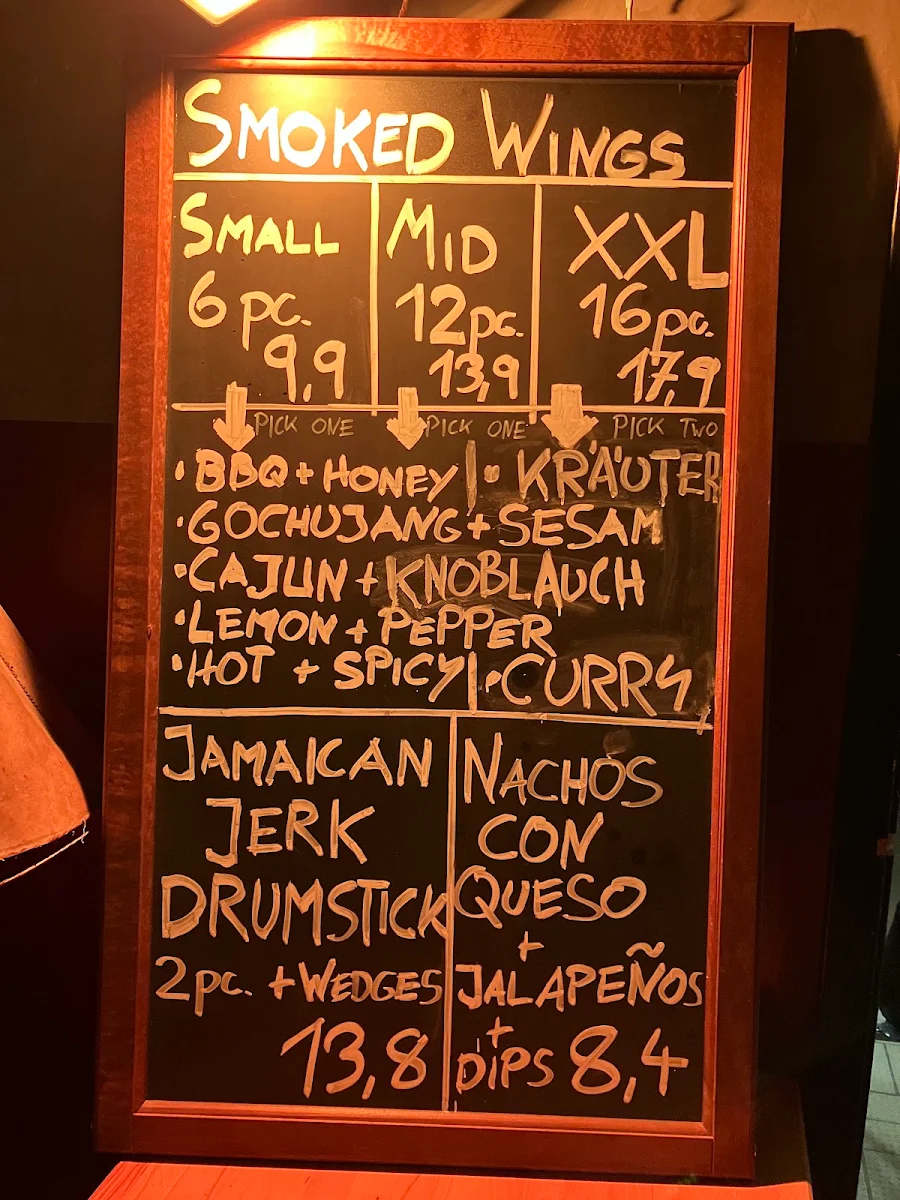 SMOKED WINGS
SMALL
6 pc.
9,9
MID
12pc.
13,9
XXL
16pc.
17,9
PICK ONE
PICK ONE
PICK TWO
• BBQ + HONEY | • KRÄUTER
• GOCHUJANG + SESAM
• CAJUN + KNOBLAUCH
• LEMON + PEPPER
• HOT + SPICY | • CURRY
JAMAICAN
JERK
DRUMSTICK
2pc. + WEDGES
13,8
NACHOS
CON
QUESO
+
JALAPEÑOS
+
DIPS 8,4